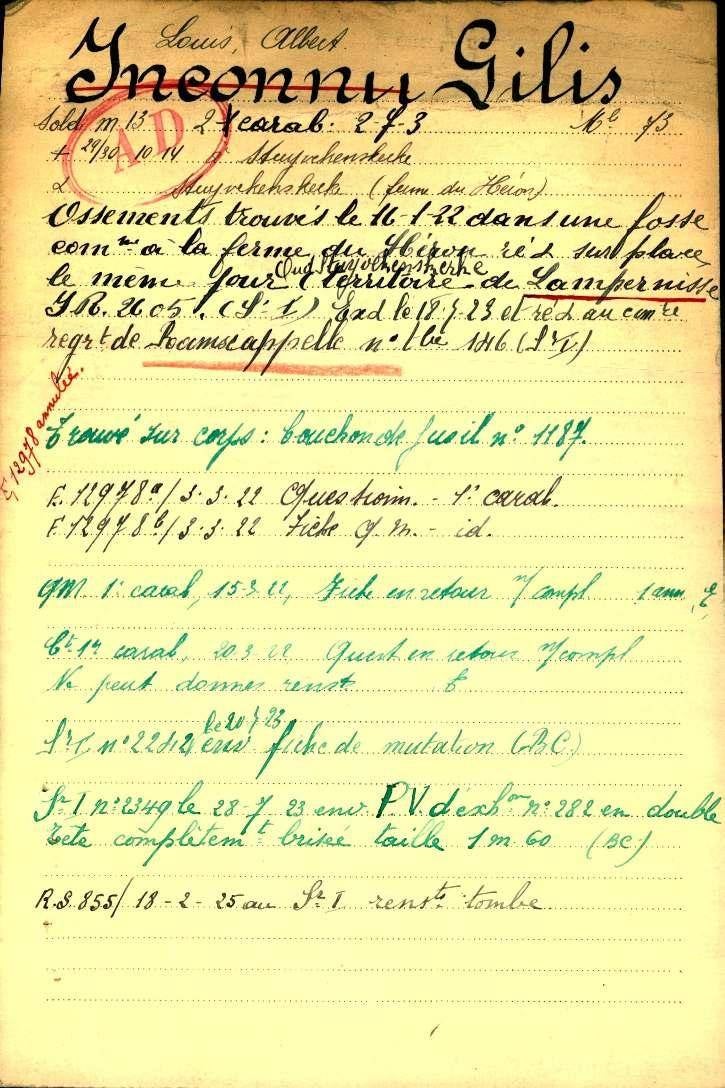 Louis, Albert
Inconnu Gilis
AD
Sold m. 13 2 carab. 2-7-3 Mle 73
+ 29/30 10 14 à Stuyvekenskerke
Stuyvekenskerke (ferme du Héron)
Ossements trouvés le 16-1-22 dans une fosse
comne à la ferme du Héron réd sur place
Oud Stuyvekenskerke
le même jour (territoire de Lampernisse
J.R. 2605. (Sr I) Exd le 18-7-23 et réd au comre
regrt de Ramscappelle n° tbe 146 (Sr I)
E 12978 annulée.
Trouvé sur corps: bouchon de fusil n° 1187.
E. 12978a/3-3-22 Questionn. - 1r carab.
E. 12978b/3-3-22 Fiche q m. - id.
qm 1r carab, 15-3-22, Fiche en retour n/compl 1 ann, E
Ct 1er carab, 20 3 22 Quest en retour n/compl
Ne peut donner renst E
le 20 7 23
Sr I n° 2242 env fiche de mutation (BC)
Sr I n° 2349 le 28-7 23 env. P.V. d'exhon n° 282 en double
Tête complètemt brisée taille 1 m 60 (BC)
R.S. 855/ 18-2-25 au Sr I rensts tombe